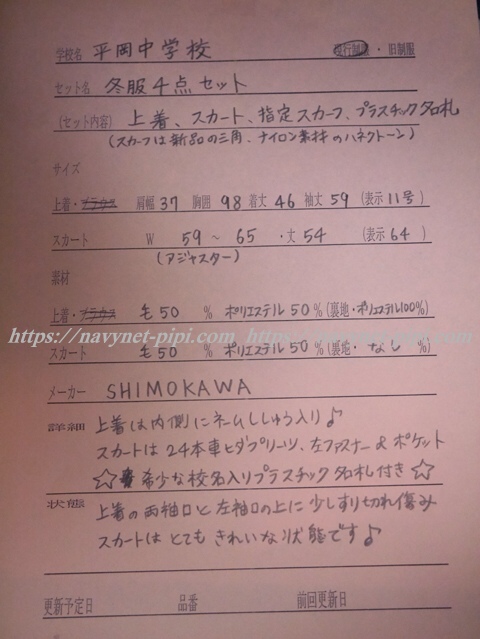 学校名 平岡中学校 現行制服・旧制服
セット名 冬服4点セット
(セット内容) 上着、スカート、指定スカーフ、プラスチック名札
(スカーフは新品の三角、ナイロン素材のハネクトーン)
サイズ
上着・ブラウス 肩幅 37 胸囲 98 着丈 46 袖丈 59 (表示 11号)
スカート W 59 ~ 65 ・丈 54 (表示 64)
(アジャスター)
素材
上着・ブラウス 毛 50 % ポリエステル 50 % (裏地・ポリエステル100%)
https://navynet-pipi.com https://navynet-pipi.com
スカート 毛 50 % ポリエステル 50 % (裏地・なし %)
メーカー SHIMOKAWA
詳細 上着は内側にネームししゅう入り♪
スカートは24本車ヒダプリーツ、左ファスナー&ポケット
☆希少な校名入りプラスチック名札付き☆
状態 上着の両袖口と左袖口の上に少しすり切れ傷み
スカートはとてもきれいな状態です♪
更新予定日 品番 前回更新日